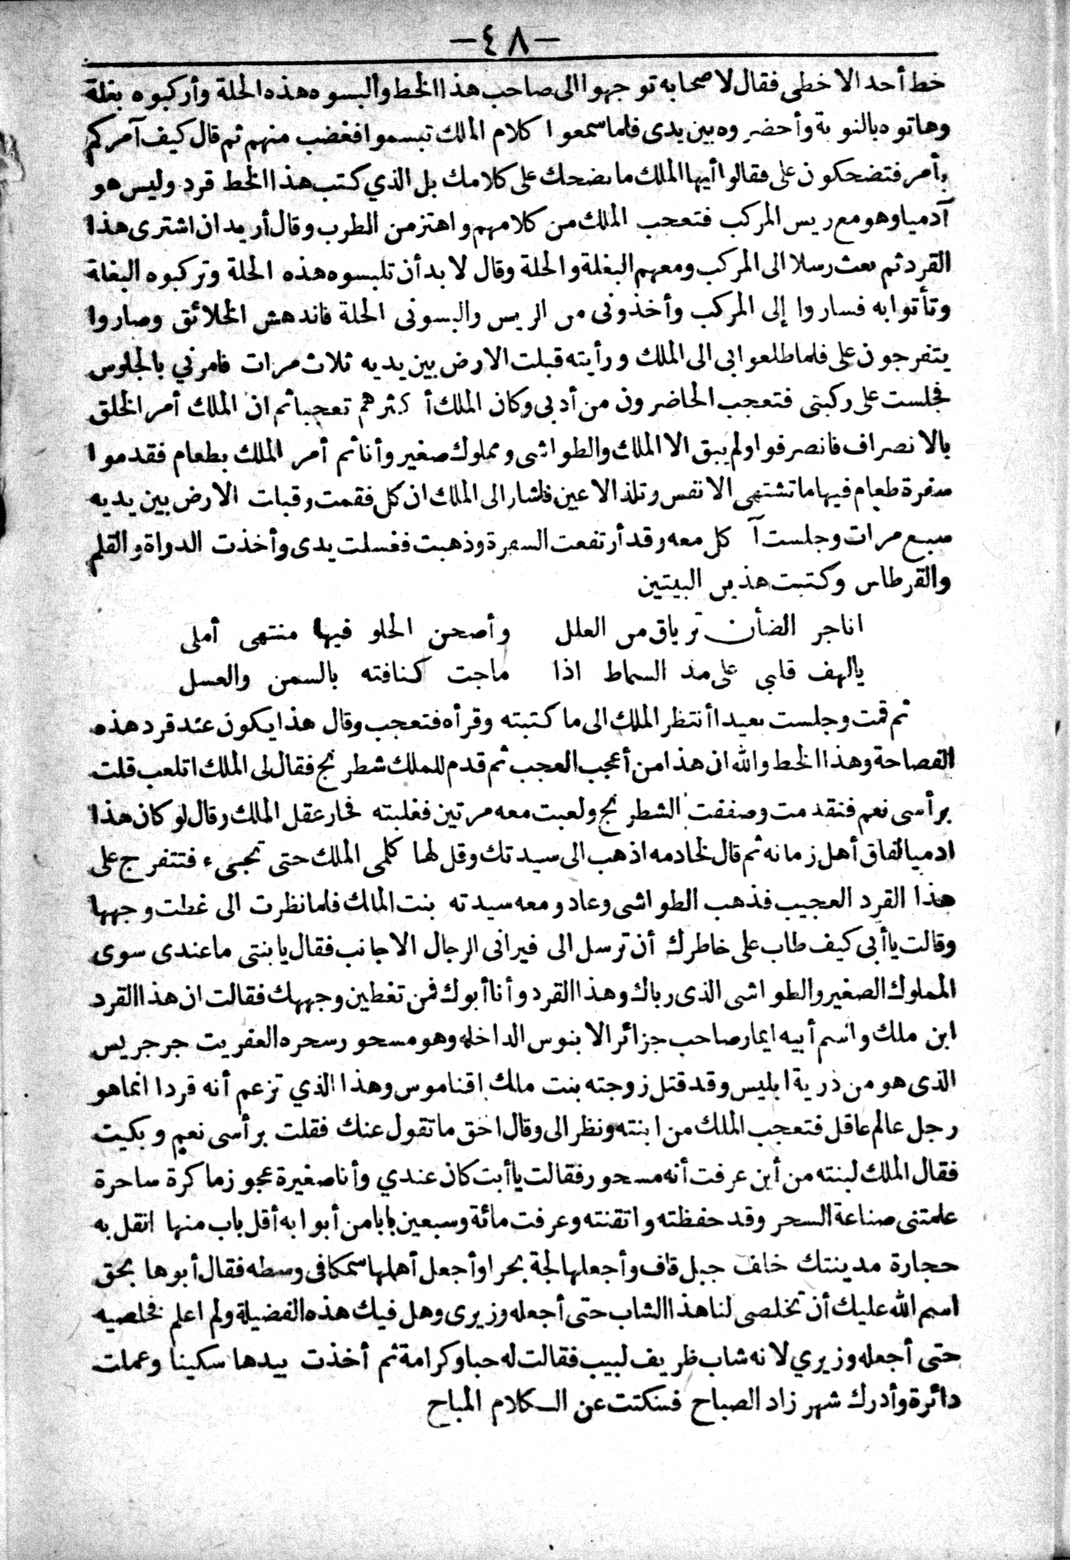 -٤٨-
خط أحد الا خطى فقال لاصحابه توجهوا الى صاحب هذا الخط وألبسوه هذه الحلة وأركبوه بغلة
وهاتوه بالنوبة وأحضروه بين يدى فلما سمعوا كلام الملك تبسموا فغضب منهم ثم قال كيف آمركم
بأمر فتضحكون على فقالوا أيها الملك ما نضحك على كلامك بل الذي كتب هذا الخط قرد وليس هو
آدميا وهو مع ريس المركب فتعجب الملك من كلامهم واهتز من الطرب وقال أريد ان اشترى هذا
القرد ثم بعث رسلا الى المركب ومعهم البغلة والحلة وقال لا بد أن تلبسوه هذه الحلة وتركبوه البغلة
وتأتوا به فساروا إلى المركب وأخذونى من الريس والبسونى الحلة فاندهش الخلائق وصاروا
يتفرجون على فلما طلعوا بى الى الملك ورأيته قبلت الارض بين يديه ثلاث مرات فامرني بالجلوس
فجلست على ركبتى فتعجب الحاضرون من أدبى وكان الملك أكثرهم تعجبا ثم ان الملك أمر الخلق
بالانصراف فانصرفوا ولم يبق الا الملك والطواشى ومملوك صغير وأنا ثم أمر الملك بطعام فقدموا
سفرة طعام فيها ما تشتهى الانفس وتلذ الاعين فاشار الى الملك ان كل فقمت وقبلت الارض بين يديه
سبع مرات وجلست آكل معه وقد أرتفعت السفرة وذهبت فغسلت يدى وأخذت الدواة والقلم
والقرطاس وكتبت هذين البيتين
اناجر الضأن ترياق من العلل وأصحن الحلو فيها منتهى أملى
يالهف قلبى على مد السماط اذا ماجت كنافته بالسمن والعسل
ثم قمت وجلست بعيدا أنتظر الملك الى ما كتبته وقرأه فتعجب وقال هذا يكون عند قرد هذه
الفصاحة وهذا الخط والله ان هذا من أعجب العجب ثم قدم للملك شطرنج فقال لى الملك اتلعب قلت
برأسى نعم فتقدمت وصففت الشطرنج ولعبت معه مرتين فغلبته فحار عقل الملك وقال لو كان هذا
ادميا لفاق أهل زمانه ثم قال لخادمه اذهب الى سيدتك وقل لها كلمى الملك حتى تجىء فتتفرج على
هذا القرد العجيب فذهب الطواشى وعاد ومعه سيدته بنت الملك فلما نظرت الى غطت وجهها
وقالت ياأبى كيف طاب على خاطرك أن ترسل الى فيرانى الرجال الاجانب فقال يا بنتى ما عندى سوى
المملوك الصغير والطواشى الذى رباك وهذا القرد وأنا أبوك فمن تغطين وجهك فقالت ان هذا القرد
ابن ملك واسم أبيه ايمار صاحب جزائر الابنوس الداخله وهو مسحور سحره العفريت جرجريس
الذى هو من ذرية ابليس وقد قتل زوجته بنت ملك اقناموس وهذا الذي تزعم أنه قردا انما هو
رجل عالم عاقل فتعجب الملك من ابنته ونظر الى وقال احق ما تقول عنك فقلت برأسى نعم وبكيت
فقال الملك لبنته من أين عرفت أنه مسحور فقالت ياأبت كان عندي وأنا صغيرة عجوز ماكرة ساحرة
علمتنى صناعة السحر وقد حفظته واتقنته وعرفت مائة وسبعين بابا من أبوابه أقل باب منها انقل به
حجارة مدينتك خلف جبل قاف وأجعلها لجة بحر وأجعل أهلها سمكا فى وسطه فقال أبوها بحق
اسم الله عليك أن تخلصى لنا هذا الشاب حتى أجعله وزيرى وهل فيك هذه الفضيلة ولم اعلم فخلصيه
حتى أجعله وزيري لانه شاب ظريف لبيب فقالت له حبا وكرامة ثم أخذت بيدها سكينا وعملت
دائرة وأدرك شهر زاد الصباح فسكتت عن الكلام المباح